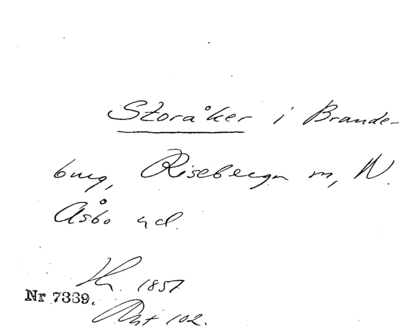 Storåker i Brande-
burg, Riseberga sn, N.
Åsbo hd.
Hr. 1857
Nr 7339.
Ant 102.